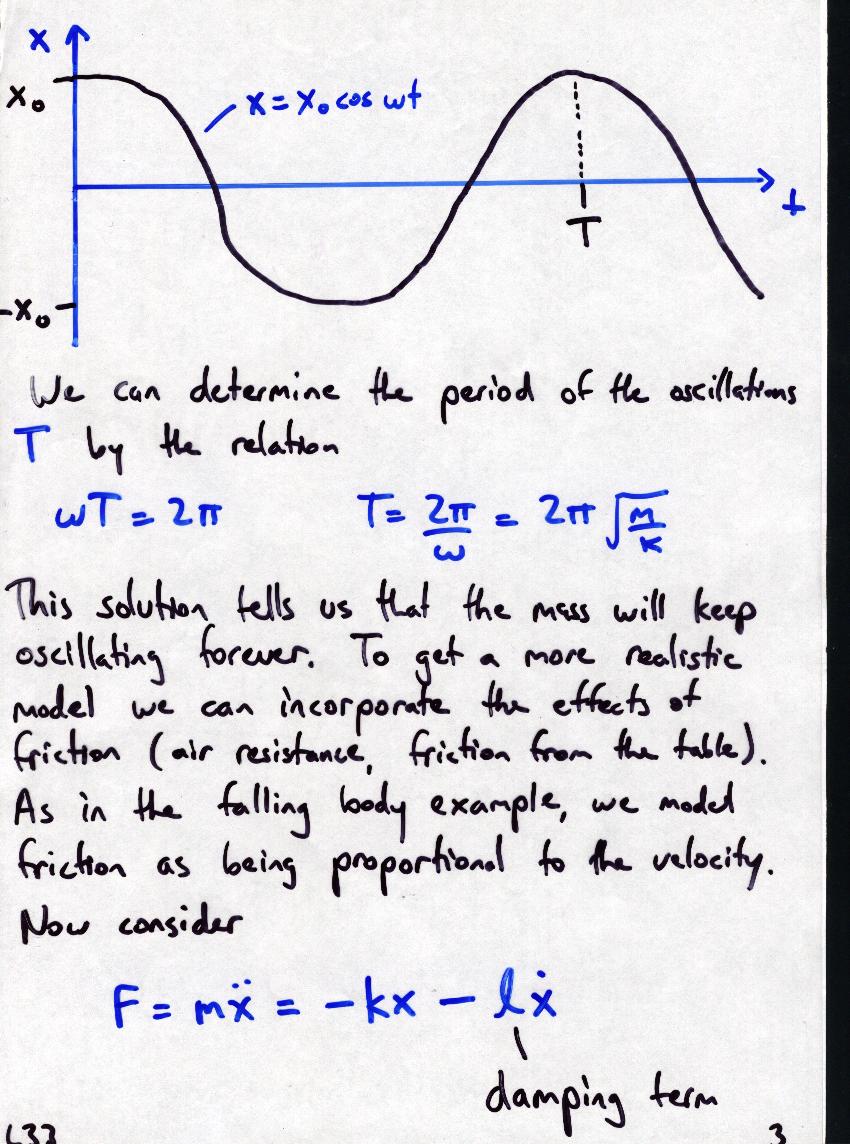 x
x₀
x = x₀ cos ωt
t
T
-x₀
We can determine the period of the oscillations
T by the relation
ωT = 2π T = 2π/ω = 2π √(m/k)
This solution tells us that the mass will keep
oscillating forever. To get a more realistic
model we can incorporate the effects of
friction (air resistance, friction from the table).
As in the falling body example, we model
friction as being proportional to the velocity.
Now consider
F = mẍ = -kx - lẋ
damping term
L33 3